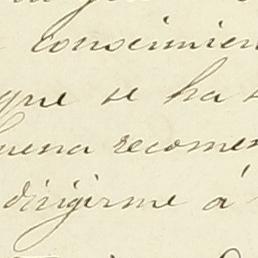 conocimien
que se ha
buena recomen
dirigirme á